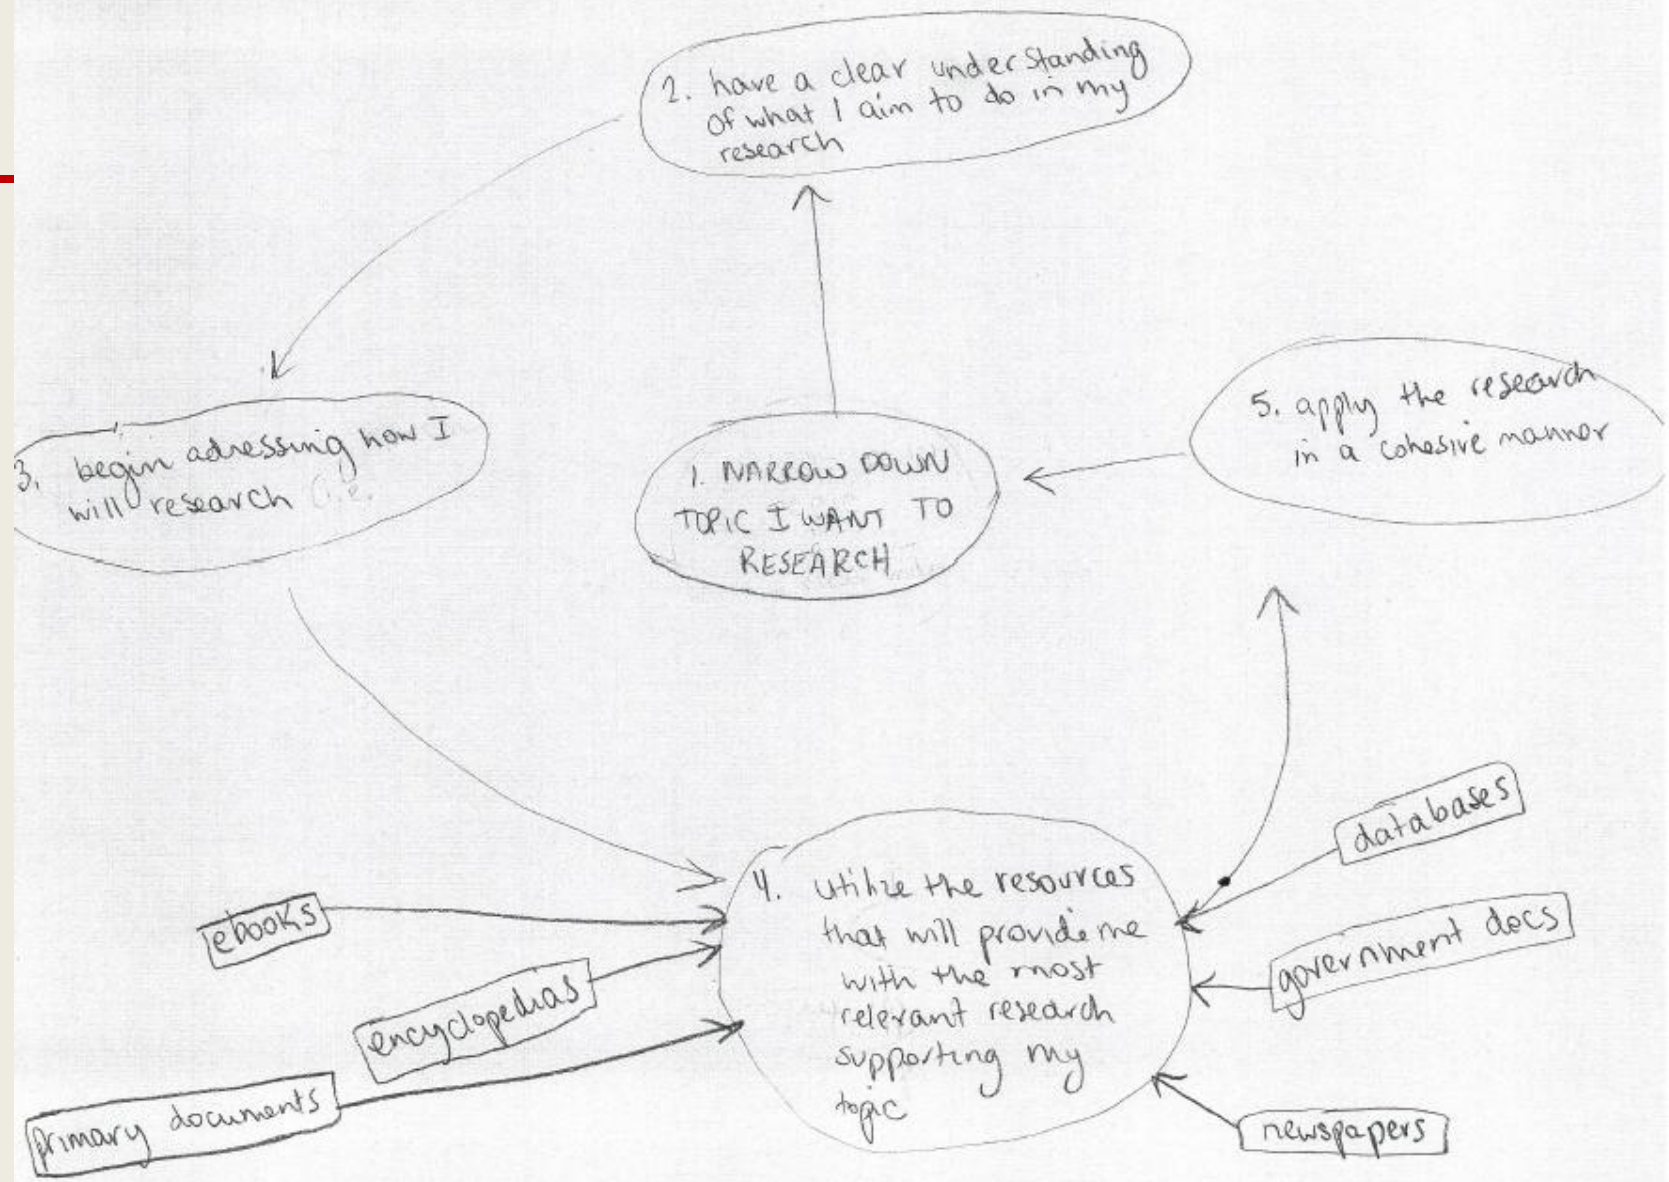 2. have a clear understanding
of what I aim to do in my
research
3. begin adressing how I
will research
1. NARROW DOWN
TOPIC I WANT TO
RESEARCH
5. apply the research
in a cohesive manner
4. utilize the resources
that will provide me
with the most
relevant research
supporting my
topic
ebooks
encyclopedias
primary documents
databases
government docs
newspapers